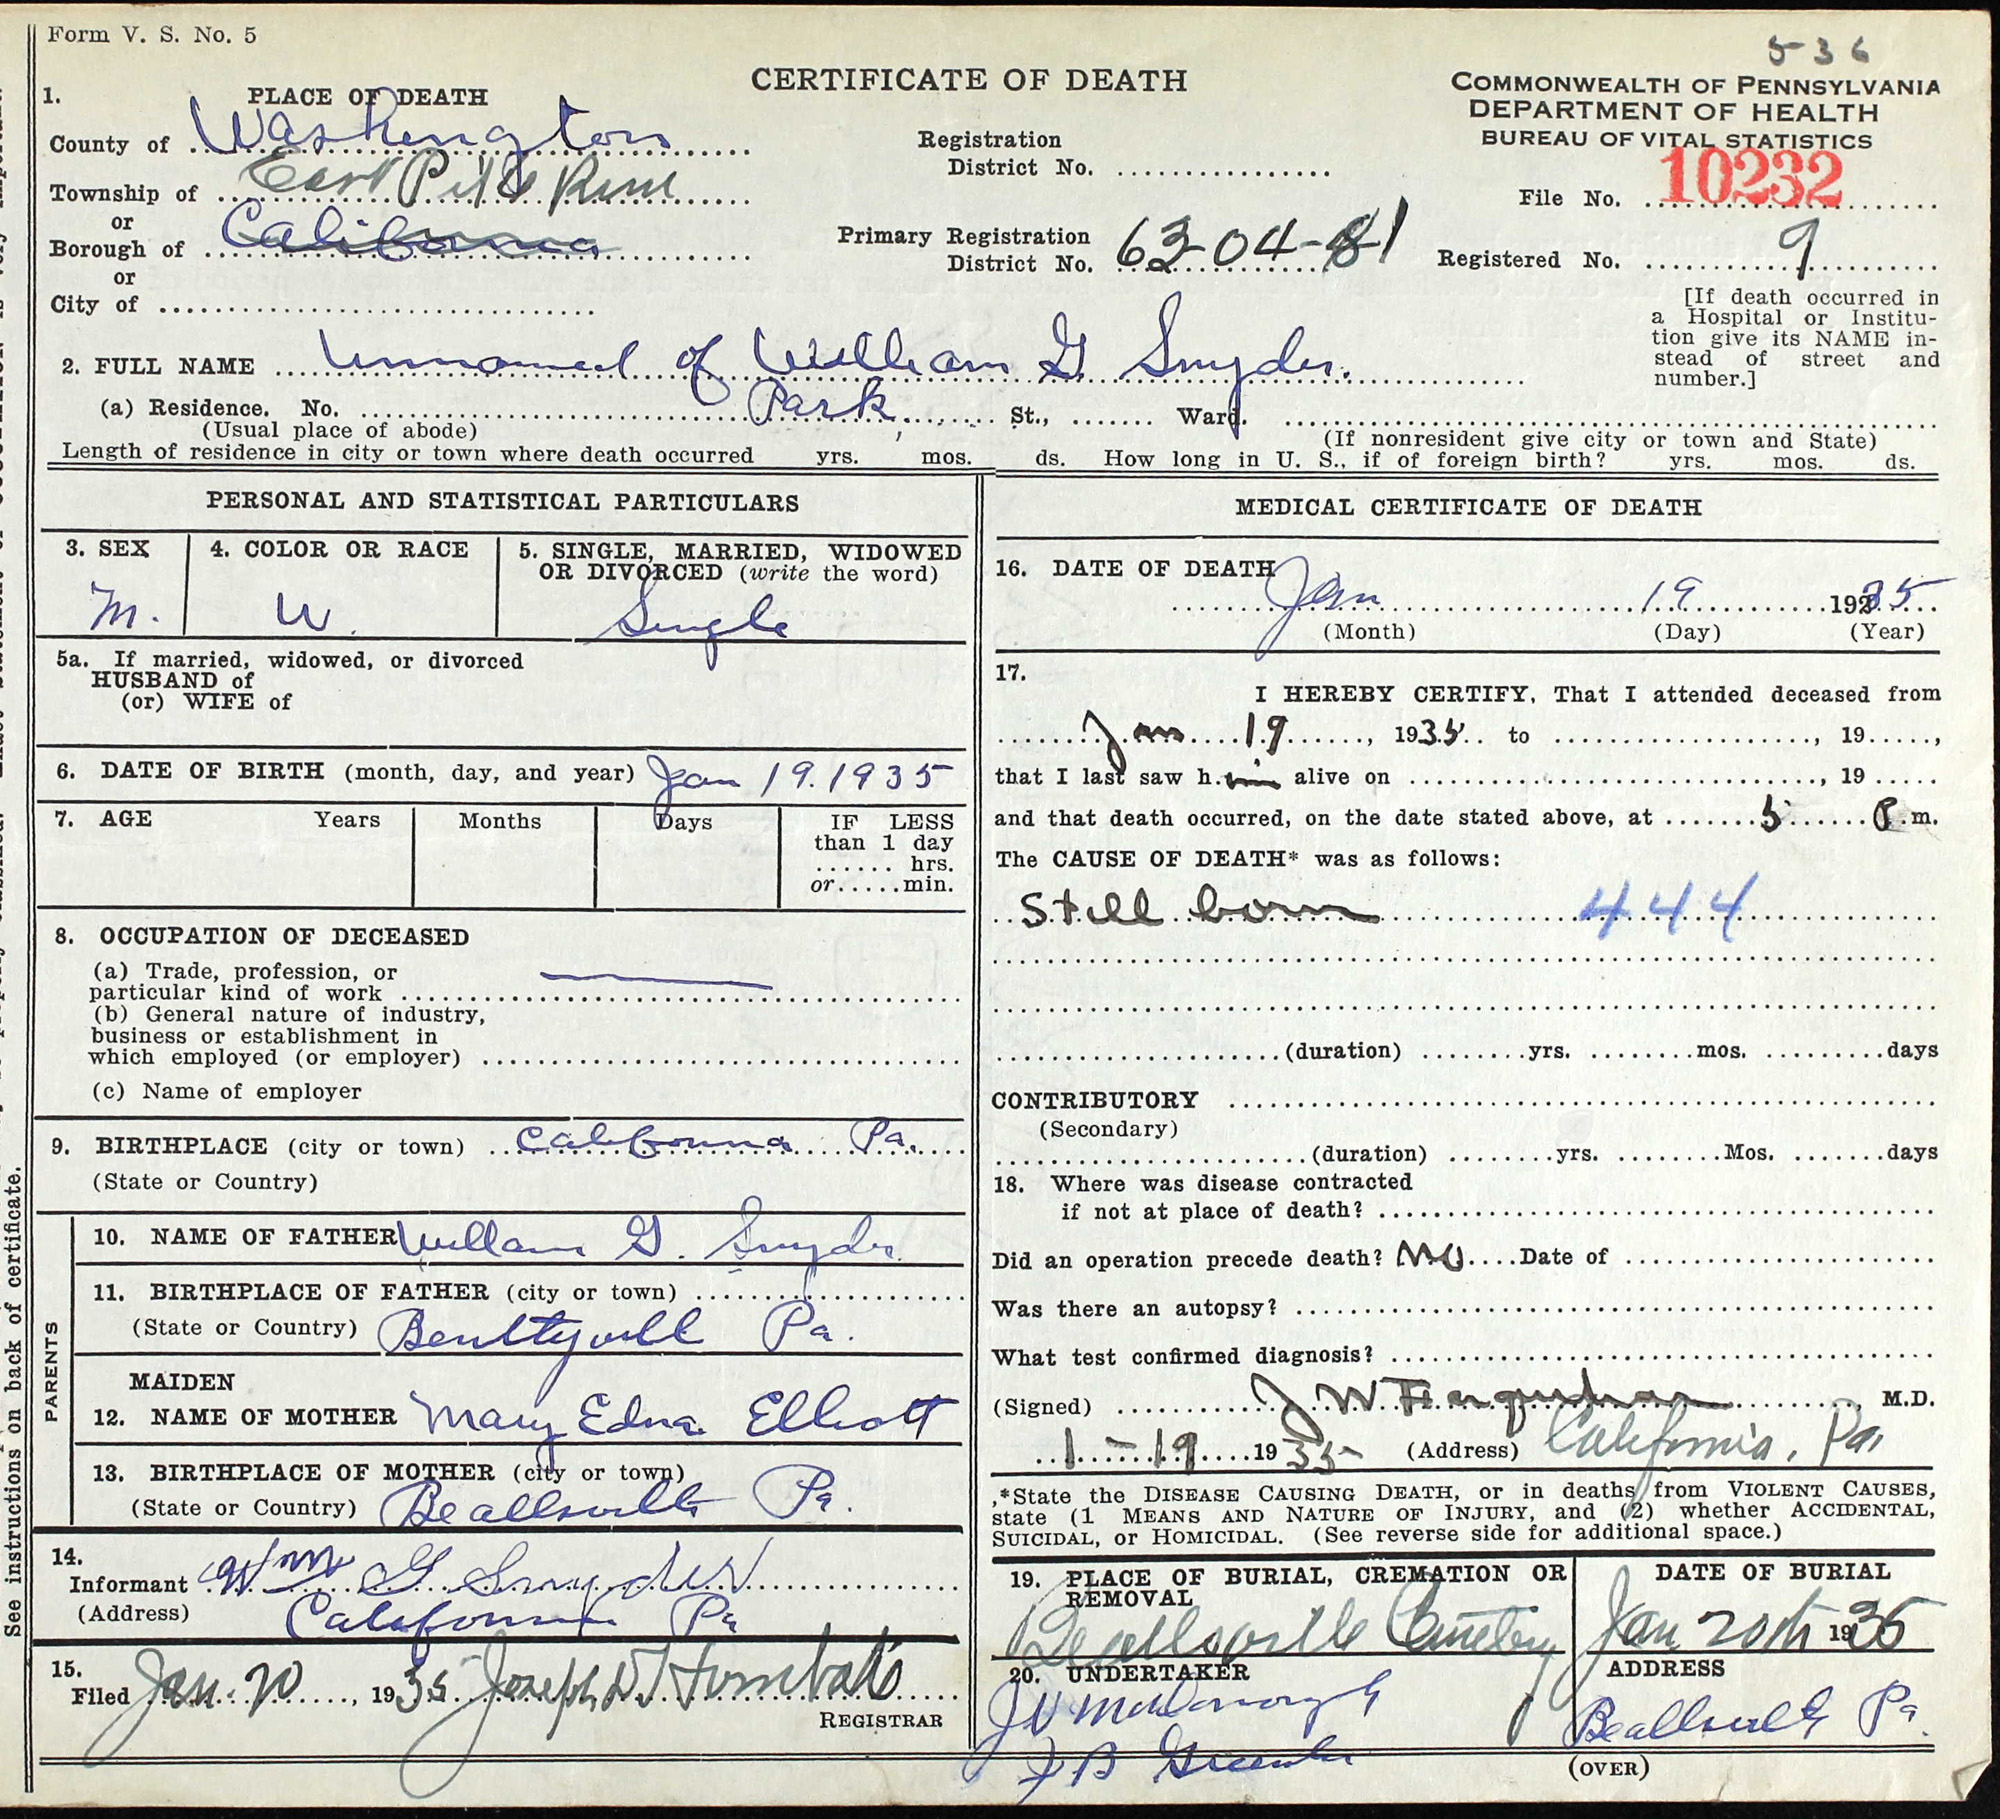 Form V. S. No. 5
536
CERTIFICATE OF DEATH
COMMONWEALTH OF PENNSYLVANIA
DEPARTMENT OF HEALTH
BUREAU OF VITAL STATISTICS
1. PLACE OF DEATH
County of Washington
Township of East Pike Run
or
Borough of California
or
City of
Registration
District No.
Primary Registration
District No. 63-04-81
File No. 10232
Registered No. 9
[If death occurred in
a Hospital or Institu-
tion give its NAME in-
stead of street and
number.]
2. FULL NAME Unnamed of William G Snyder.
(a) Residence. No. Park St., Ward.
(Usual place of abode) (If nonresident give city or town and State)
Length of residence in city or town where death occurred yrs. mos. ds. How long in U. S., if of foreign birth? yrs. mos. ds.
PERSONAL AND STATISTICAL PARTICULARS
3. SEX
M.
4. COLOR OR RACE
W.
5. SINGLE, MARRIED, WIDOWED
OR DIVORCED (write the word)
Single
5a. If married, widowed, or divorced
HUSBAND of
(or) WIFE of
6. DATE OF BIRTH (month, day, and year) Jan 19. 1935
7. AGE Years Months Days IF LESS
than 1 day
hrs.
or min.
8. OCCUPATION OF DECEASED
(a) Trade, profession, or
particular kind of work
(b) General nature of industry,
business or establishment in
which employed (or employer)
(c) Name of employer
9. BIRTHPLACE (city or town) California Pa.
(State or Country)
PARENTS
10. NAME OF FATHER William G. Snyder
11. BIRTHPLACE OF FATHER (city or town)
(State or Country) Pa.
MAIDEN
12. NAME OF MOTHER Mary Edna Elliott
13. BIRTHPLACE OF MOTHER (city or town)
(State or Country) Beallsville Pa.
14.
Informant Wm G Snyder
(Address) California Pa
15.
Filed Jan. 20, 1935 Joseph
REGISTRAR
MEDICAL CERTIFICATE OF DEATH
16. DATE OF DEATH
Jan 19 1935
(Month) (Day) (Year)
17.
I HEREBY CERTIFY, That I attended deceased from
Jan 19, 1935 to , 19 ,
that I last saw him alive on , 19
and that death occurred, on the date stated above, at 5 P.m.
The CAUSE OF DEATH* was as follows:
Still born 444
(duration) yrs. mos. days
CONTRIBUTORY
(Secondary)
(duration) yrs. Mos. days
18. Where was disease contracted
if not at place of death?
Did an operation precede death? No Date of
Was there an autopsy?
What test confirmed diagnosis?
(Signed) J W Farquhar M.D.
1-19 1935 (Address) California, Pa
*State the DISEASE CAUSING DEATH, or in deaths from VIOLENT CAUSES,
state (1 MEANS AND NATURE OF INJURY, and (2) whether ACCIDENTAL,
SUICIDAL, or HOMICIDAL. (See reverse side for additional space.)
19. PLACE OF BURIAL, CREMATION OR
REMOVAL
Beallsville Cemetery
DATE OF BURIAL
Jan 20th 1935
20. UNDERTAKER
J V McDonough
B
ADDRESS
Beallsville Pa.
(OVER)
See instructions on back of certificate.